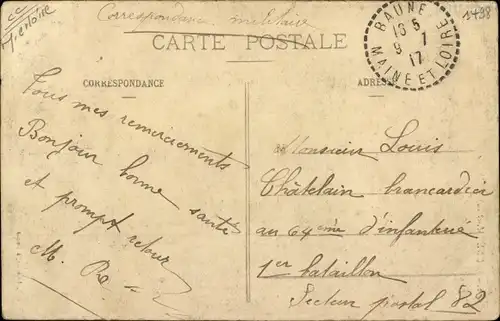 Correspondance militaire
1498
CARTE POSTALE
BAUNÉ
16 5
9 7
17
MAINE ET LOIRE
CORRESPONDANCE
ADRES
Tous mes remerciements
Bonjour bonne santé
et prompt retour
M. R.
Monsieur Louis
Châtelain brancardier
au 64ème d'infanterie
1er bataillon
Secteur postal 82